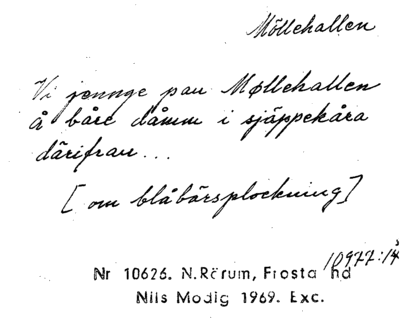 Möllehallen
Vi jennge pau Møllehallen
å båre dåmm i sjäppekåra
därifrau...
[om blåbärsplockning]
10977:14
Nr 10626. N.Rörum, Frosta hd
Nils Modig 1969. Exc.